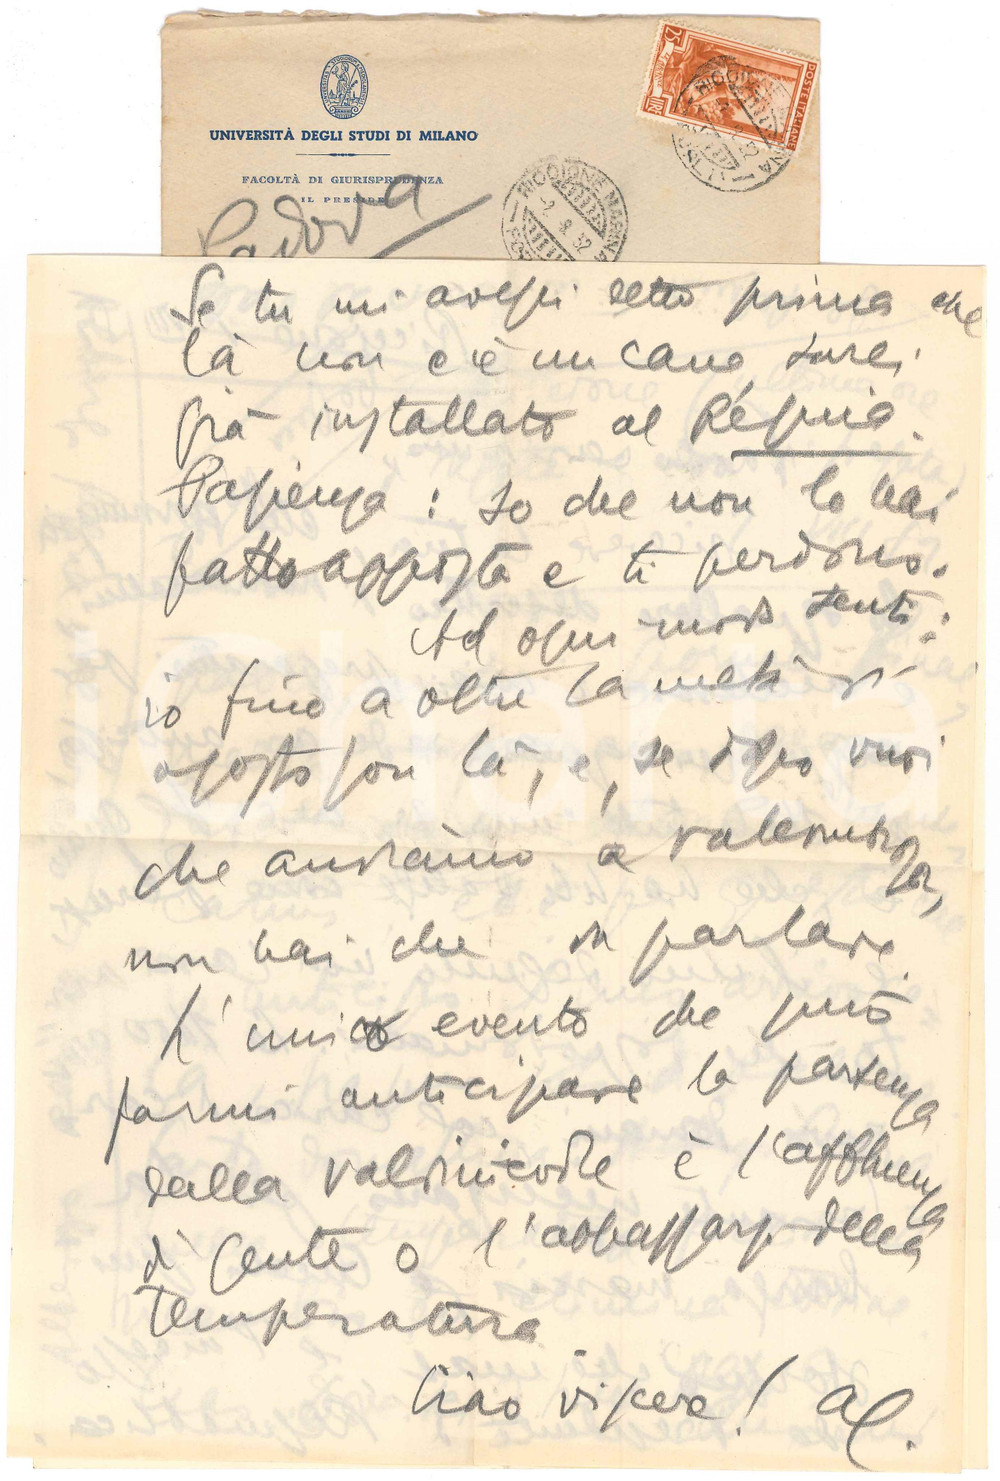 UNIVERSITÀ DEGLI STUDI DI MILANO
FACOLTÀ DI GIURISPRUDENZA
IL PRESIDE
Padova
POSTE ITALIANE
LIRE 25
RICCIONE MARINA
2.8.52
Se tu mi avessi detto prima che
là non c'è un cane, sarei
già installato al Régina.
Pazienza: so che non lo hai
fatto apposta e ti perdono.
Ad ogni modo senti:
io fino a oltre la metà di
agosto son là, e, se dopo vuoi
che andiamo a
non hai che da parlare.
L'unico evento che può
farmi anticipare la partenza
dalla è l'affluenza
di gente o l'abbassarsi della
temperatura
Ciao vipere! al.
iCharta